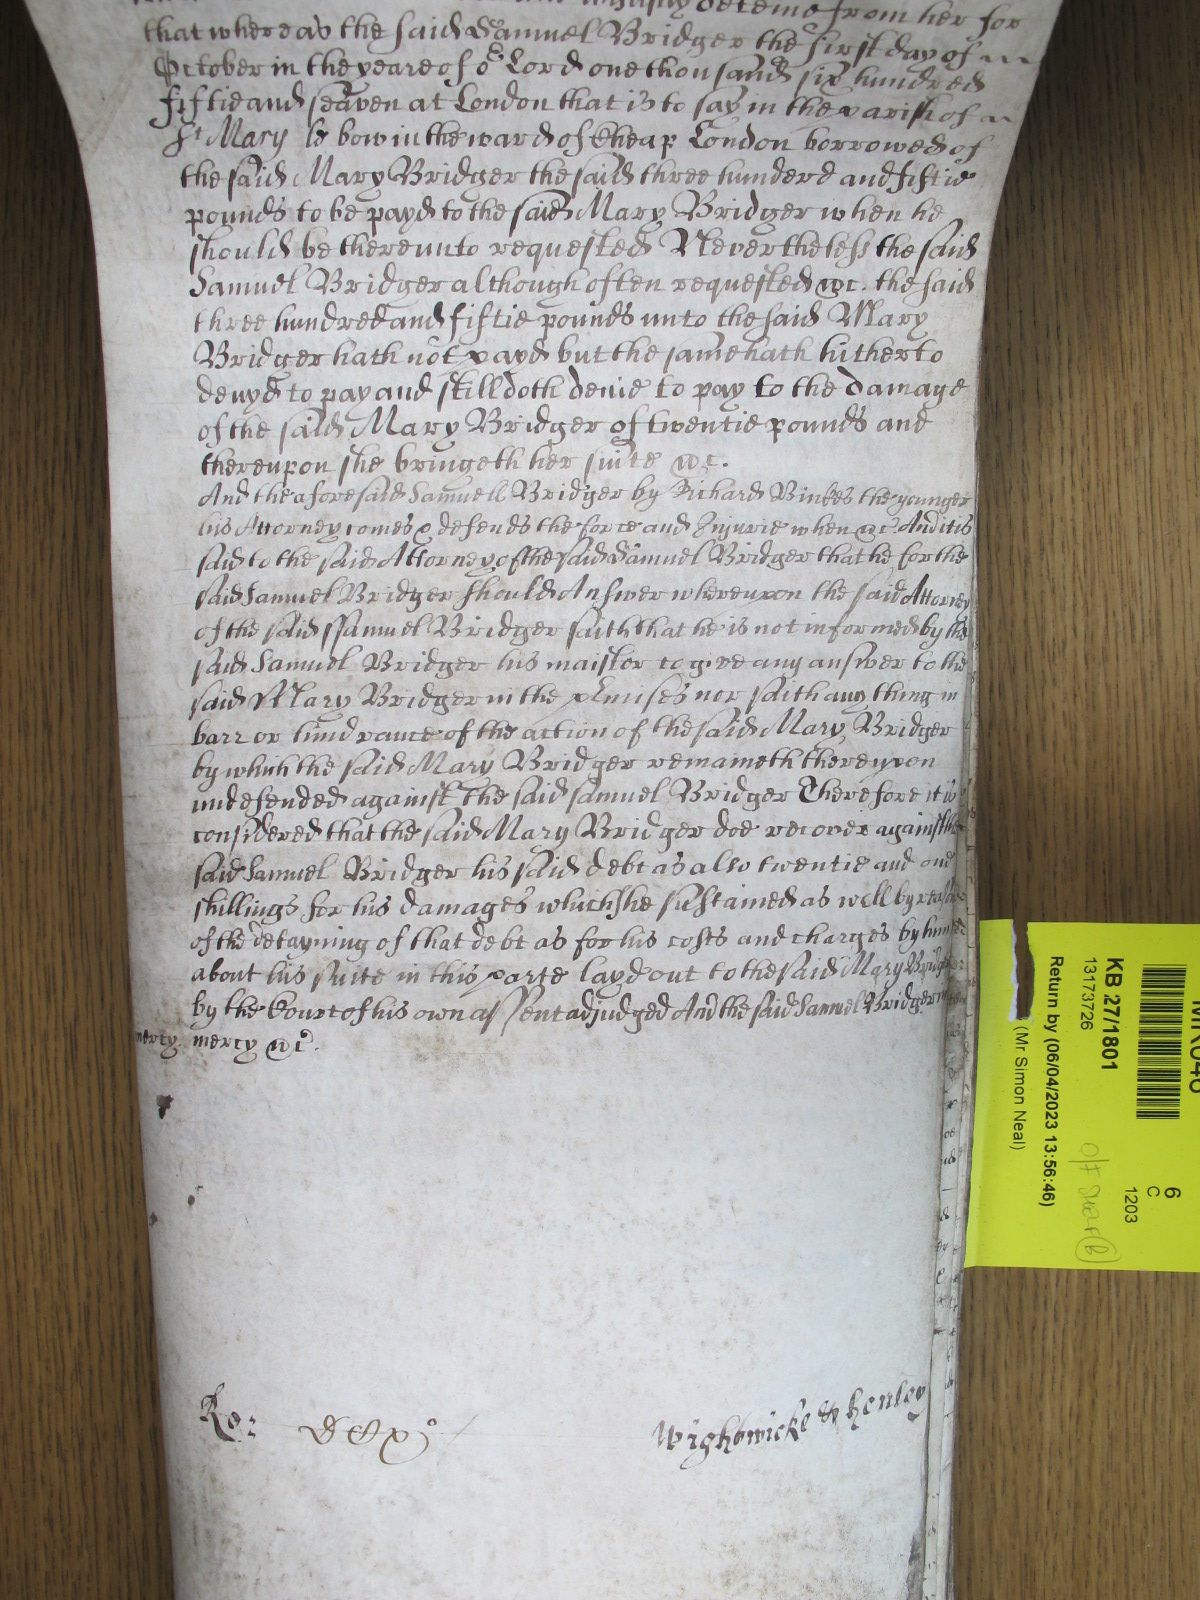 deteine from her for
that whereas the said Samuel Bridger the first day of
October in the yeare of or Lord one thousand six hundred
fiftie and seaven at London that is to say in the parish of
St Mary le bow in the ward of Cheap London borrowed of
the said Mary Bridger the said three hunderd and fiftie
pounds to be payd to the said Mary Bridger when he
should be thereunto requested Nevertheless the said
Samuel Bridger although often requested &c. the said
three hundred and fiftie pounds unto the said Mary
Bridger hath not payd but the same hath hitherto
denyd to pay and still doth denie to pay to the damage
of the said Mary Bridger of twentie pounds and
thereupon she bringeth her suite &c.
And the aforesaid Samuell Bridger by Richard Binkes the younger
his Attorney comes & defends the force and Injurie when &c And it is
said to the said Attorney of the said Samuel Bridger that he for the
said Samuel Bridger should Answer whereupon the said Attorney
of the said Samuel Bridger saith that he is not informed by the
said Samuel Bridger his maister to give any answer to the
said Mary Bridger in the pmises nor saith any thing in
barr or hindrance of the action of the said Mary Bridger
by which the said Mary Bridger remaineth thereupon
undefended against the said Samuel Bridger Therefore it is
considered that the said Mary Bridger doe recover against the
said Samuel Bridger his said debt as also twentie and one
shillings for his damages which she sustained as well by reason
of the detayning of that debt as for his costs and charges by him
about his suite in this parte layd out to the said Mary Bridger
by the Court of his own assent adjudged And the said Samuel Bridger in
mercy mercy &c.
Ro:
Wightwicke & Henley
KB 27/1801
13173726
Return by (06/04/2023 13:56:46)
(Mr Simon Neal)
6
C
1203